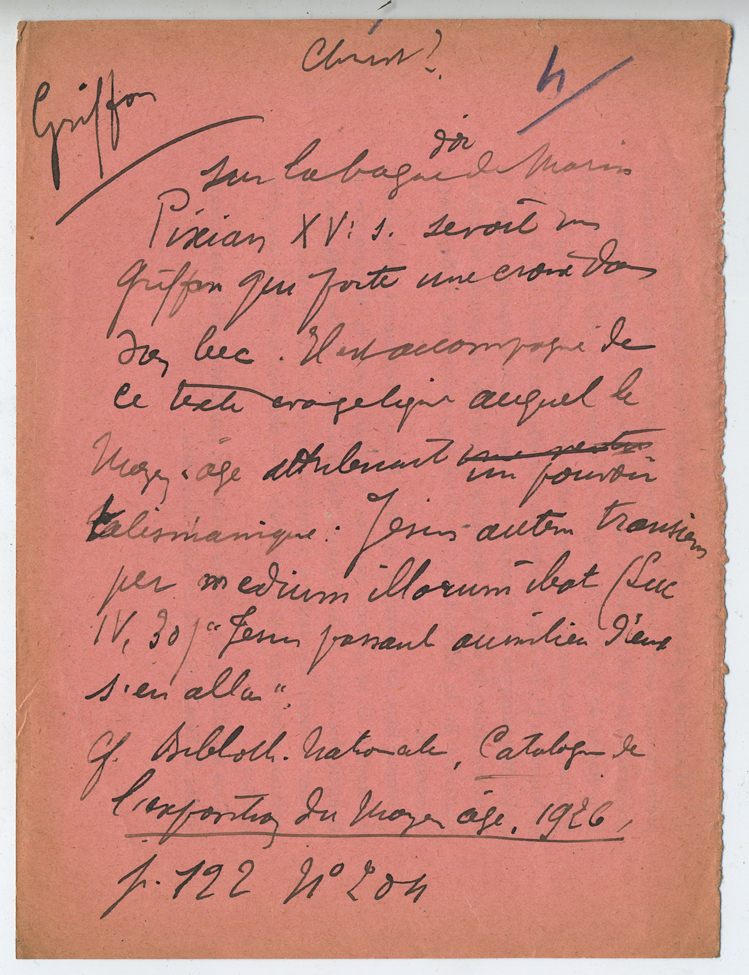 Christ?
4
Griffon
d'or
sur la bague de Marin
Pixian XVe s. serait un
griffon qui porte une croix dans
son bec. Il est accompagné de
ce texte evangelique auquel le
Moyen-âge attribuait
un pouvoir
talismanique: Jesus autem transiens
per medium illorum ibat (Luc
IV, 30) "Jesus passant au milieu d'eux
s'en alla".
Cf. Biblioth. Nationale, Catalogue de
l'exposition du Moyen âge, 1926,
p. 122 N° 204